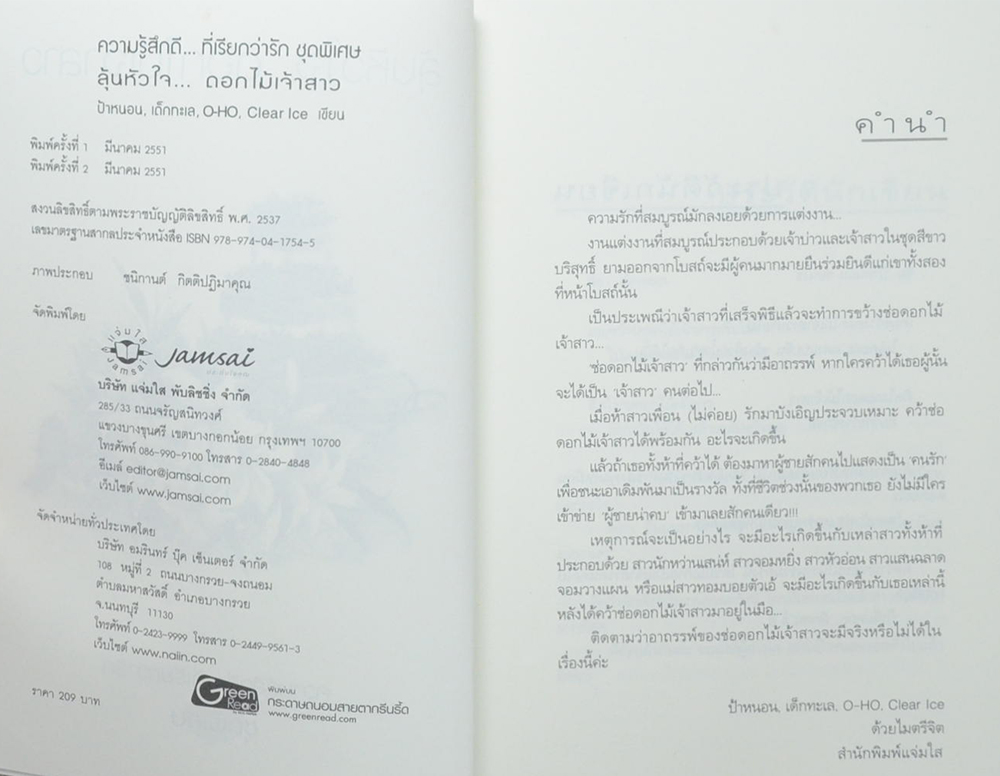 ความรู้สึกดี... ที่เรียกว่ารัก ชุดพิเศษ
ลุ้นหัวใจ... ดอกไม้เจ้าสาว
ป้าหนอน, เด็กทะเล, O-HO, Clear Ice เขียน
พิมพ์ครั้งที่ 1 มีนาคม 2551
พิมพ์ครั้งที่ 2 มีนาคม 2551
สงวนลิขสิทธิ์ตามพระราชบัญญัติลิขสิทธิ์ พ.ศ. 2537
เลขมาตรฐานสากลประจำหนังสือ ISBN 978-974-04-1754-5
ภาพประกอบ ชนิกานต์ กิตติปฎิมาคุณ
จัดพิมพ์โดย
แจ่มใส
Jamsai
Jamsai
บริษัท แจ่มใส พับลิชชิ่ง จำกัด
285/33 ถนนจรัญสนิทวงศ์
แขวงบางขุนศรี เขตบางกอกน้อย กรุงเทพฯ 10700
โทรศัพท์ 086-990-9100 โทรสาร 0-2840-4848
อีเมล์ editor@jamsai.com
เว็บไซต์ www.jamsai.com
จัดจำหน่ายทั่วประเทศโดย
บริษัท อมรินทร์ บุ๊ค เซ็นเตอร์ จำกัด
108 หมู่ที่ 2 ถนนบางกรวย-จงถนอม
ตำบลมหาสวัสดิ์ อำเภอบางกรวย
จ.นนทบุรี 11130
โทรศัพท์ 0-2423-9999 โทรสาร 0-2449-9561-3
เว็บไซต์ www.naiin.com
ราคา 209 บาท
Green Read
พิมพ์บน
กระดาษถนอมสายตากรีนรี้ด
www.greenread.com
คำนำ
ความรักที่สมบูรณ์มักลงเอยด้วยการแต่งงาน...
งานแต่งงานที่สมบูรณ์ประกอบด้วยเจ้าบ่าวและเจ้าสาวในชุดสีขาว
บริสุทธิ์ ยามออกจากโบสถ์จะมีผู้คนมากมายยืนร่วมยินดีแก่เขาทั้งสอง
ที่หน้าโบสถ์นั้น
เป็นประเพณีว่าเจ้าสาวที่เสร็จพิธีแล้วจะทำการขว้างช่อดอกไม้
เจ้าสาว...
'ช่อดอกไม้เจ้าสาว' ที่กล่าวกันว่ามีอาถรรพ์ หากใครคว้าได้เธอผู้นั้น
จะได้เป็น 'เจ้าสาว' คนต่อไป...
เมื่อห้าสาวเพื่อน (ไม่ค่อย) รักมาบังเอิญประจวบเหมาะ คว้าช่อ
ดอกไม้เจ้าสาวได้พร้อมกัน อะไรจะเกิดขึ้น
แล้วถ้าเธอทั้งห้าที่คว้าได้ ต้องมาหาผู้ชายสักคนไปแสดงเป็น 'คนรัก'
เพื่อชนะเอาเดิมพันมาเป็นรางวัล ทั้งที่ชีวิตช่วงนั้นของพวกเธอ ยังไม่มีใคร
เข้าข่าย 'ผู้ชายน่าคบ' เข้ามาเลยสักคนเดียว!!!
เหตุการณ์จะเป็นอย่างไร จะมีอะไรเกิดขึ้นกับเหล่าสาวทั้งห้าที่
ประกอบด้วย สาวนักหว่านเสน่ห์ สาวจอมหยิ่ง สาวหัวอ่อน สาวแสนฉลาด
จอมวางแผน หรือแม่สาวทอมบอยตัวเอ้ จะมีอะไรเกิดขึ้นกับเธอเหล่านี้
หลังได้คว้าช่อดอกไม้เจ้าสาวมาอยู่ในมือ...
ติดตามว่าอาถรรพ์ของช่อดอกไม้เจ้าสาวจะมีจริงหรือไม่ได้ใน
เรื่องนี้ค่ะ
ป้าหนอน, เด็กทะเล, O-HO, Clear Ice
ด้วยไมตรีจิต
สำนักพิมพ์แจ่มใส